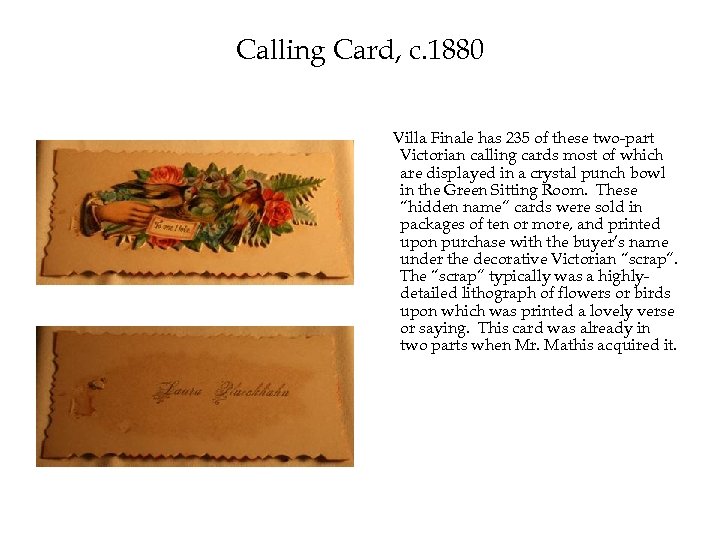 Calling Card, c.1880
Villa Finale has 235 of these two-part
Victorian calling cards most of which
are displayed in a crystal punch bowl
in the Green Sitting Room. These
“hidden name” cards were sold in
packages of ten or more, and printed
upon purchase with the buyer’s name
under the decorative Victorian “scrap”.
The “scrap” typically was a highly-
detailed lithograph of flowers or birds
upon which was printed a lovely verse
or saying. This card was already in
two parts when Mr. Mathis acquired it.
Laura